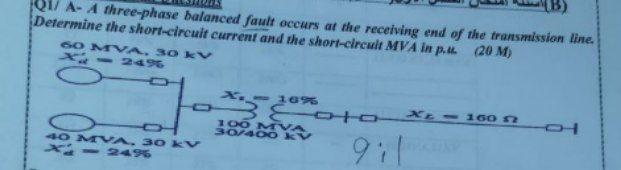 (B)
Q1/ A- A three-phase balanced fault occurs at the receiving end of the transmission line.
Determine the short-circuit current and the short-circuit MVA in p.u. (20 M)
60 MVA, 30 kV
X'd = 24%
X = 16%
100 MVA
30/400 kV
XL = 160 Ω
40 MVA, 30 kV
X'd = 24%